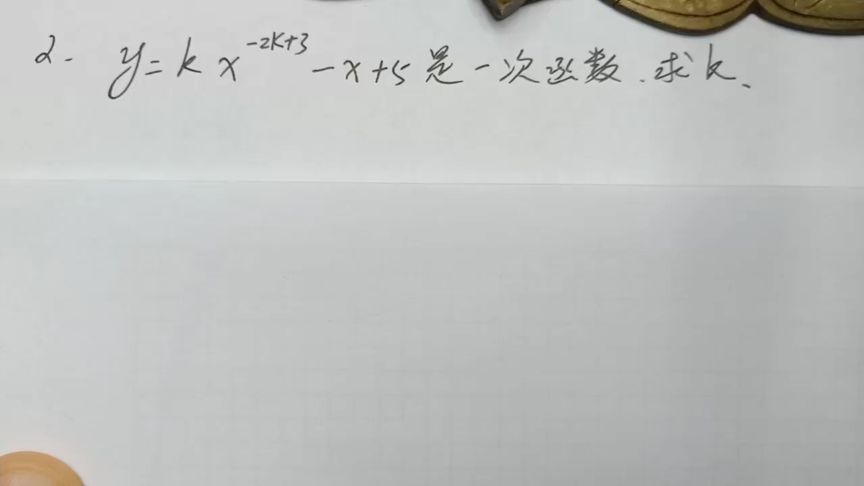 2. y=kx^{-2k+3}-x+5是一次函数.求k.